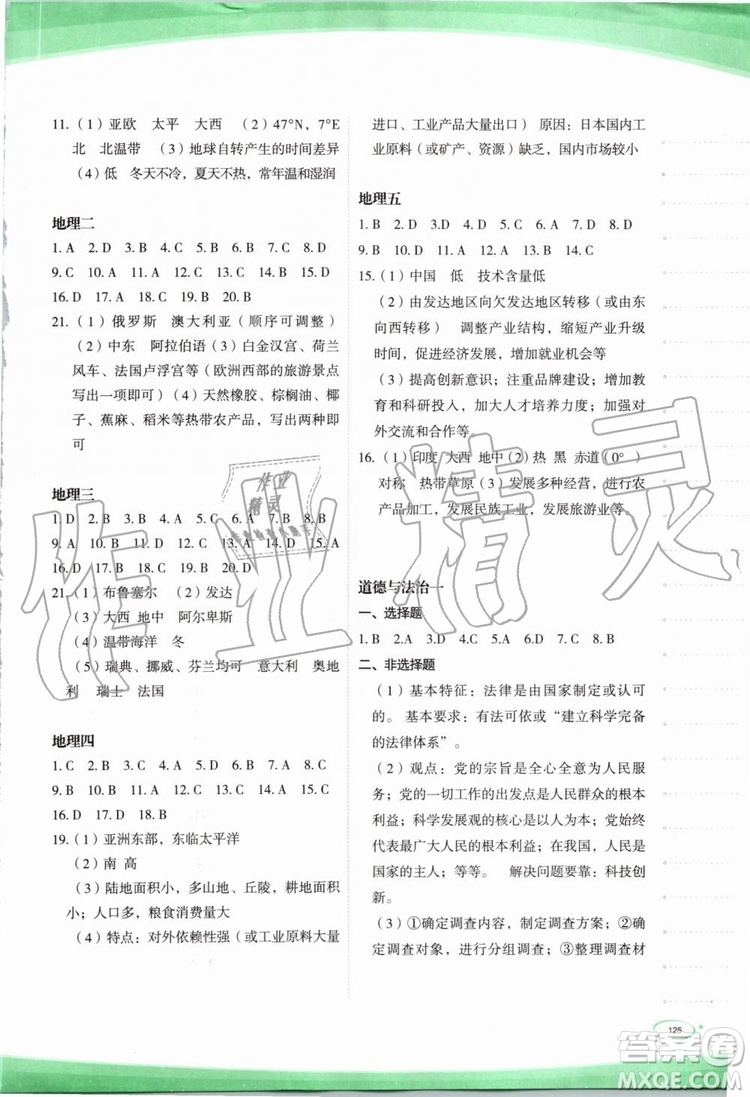 11.（1）亚欧 太平 大西 （2）47°N，7°E
北 北温带 （3）地球自转产生的时间差异
（4）低 冬天不冷，夏天不热，常年温和湿润
地理二
1. A 2. D 3. B 4. C 5. B 6. B 7. B 8. D
9. C 10. A 11. D 12. D 13. B 14. C 15. A
16. D 17. D 18. D 19. B 20. B
21.（1）俄罗斯 澳大利亚（顺序可调整）
（2）中东 阿拉伯语（3）白金汉宫、荷兰
风车、法国卢浮宫等（欧洲西部的旅游景点
写出一项即可）（4）天然橡胶、棕榈油、椰
子、蕉麻、稻米等热带农产品，写出两种即
可
地理三
1. D 2. B 3. B 4. A 5. C 6. C 7. B 8. A
9. D 10. B 11. A 12. D 13. D 14. D 15. A
16. D 17. D 18. B 19. B 20. C
21.（1）布鲁塞尔 （2）发达
（3）大西 地中 阿尔卑斯
（4）温带海洋 冬
（5）瑞典、挪威、芬兰均可 意大利 奥地
利 瑞士 法国
地理四
1. C 2. B 3. C 4. B 5. C 6. B 7. A 8. D
9. B 10. A 11. B 12. A 13. A 14. B 15. D
16. D 17. D 18. B
19.（1）亚洲东部，东临太平洋
（2）南 高
（3）陆地面积小，多山地、丘陵，耕地面积
小；人口多，粮食消费量大
（4）特点：对外依赖性强（或工业原料大量
进口、工业产品大量出口） 原因：日本国内工
业原料（或矿产、资源）缺乏，国内市场较小
地理五
1. B 2.D 3.D 4.D 5.D 6.B 7.A 8.D
9. B 10. A 11. D 12. B 13. B 14. C
15.（1）中国 低 技术含量低
（2）由发达地区向欠发达地区转移（或由东
向西转移） 调整产业结构，缩短产业升级
时间，促进经济发展，增加就业机会等
（3）提高创新意识；注重品牌建设；增加教
育和科研投入，加大人才培养力度；加强对
外交流和合作等。
16.（1）印度 大西 地中 (2）热 黑 赤道（0° ）
对称 热带草原（3）发展多种经营，进行农
产品加工，发展民族工业，发展旅游业等。
道德与法治一
一、选择题
1. B 2.A 3.A 4.D 5.D 6.C 7.C 8. B
二、非选择题
（1）基本特征：法律是由国家制定或认可
的。 基本要求：有法可依或“建立科学完备
的法律体系”。
（2）观点：党的宗旨是全心全意为人民服
务，党一切工作的出发点是人民群众的根本
利益；科学发展观的核心是以人为本；党始终
代表最广大人民的根本利益；在我国，人民是
国家的主人；等等。 解决问题要靠：科技创
新。
（3）①确定调查内容，制定调查方案；②确
定调查对象，进行分组调查；③整理调查材
125
作业精灵
作业
精灵
答案卷
MXQE.COM